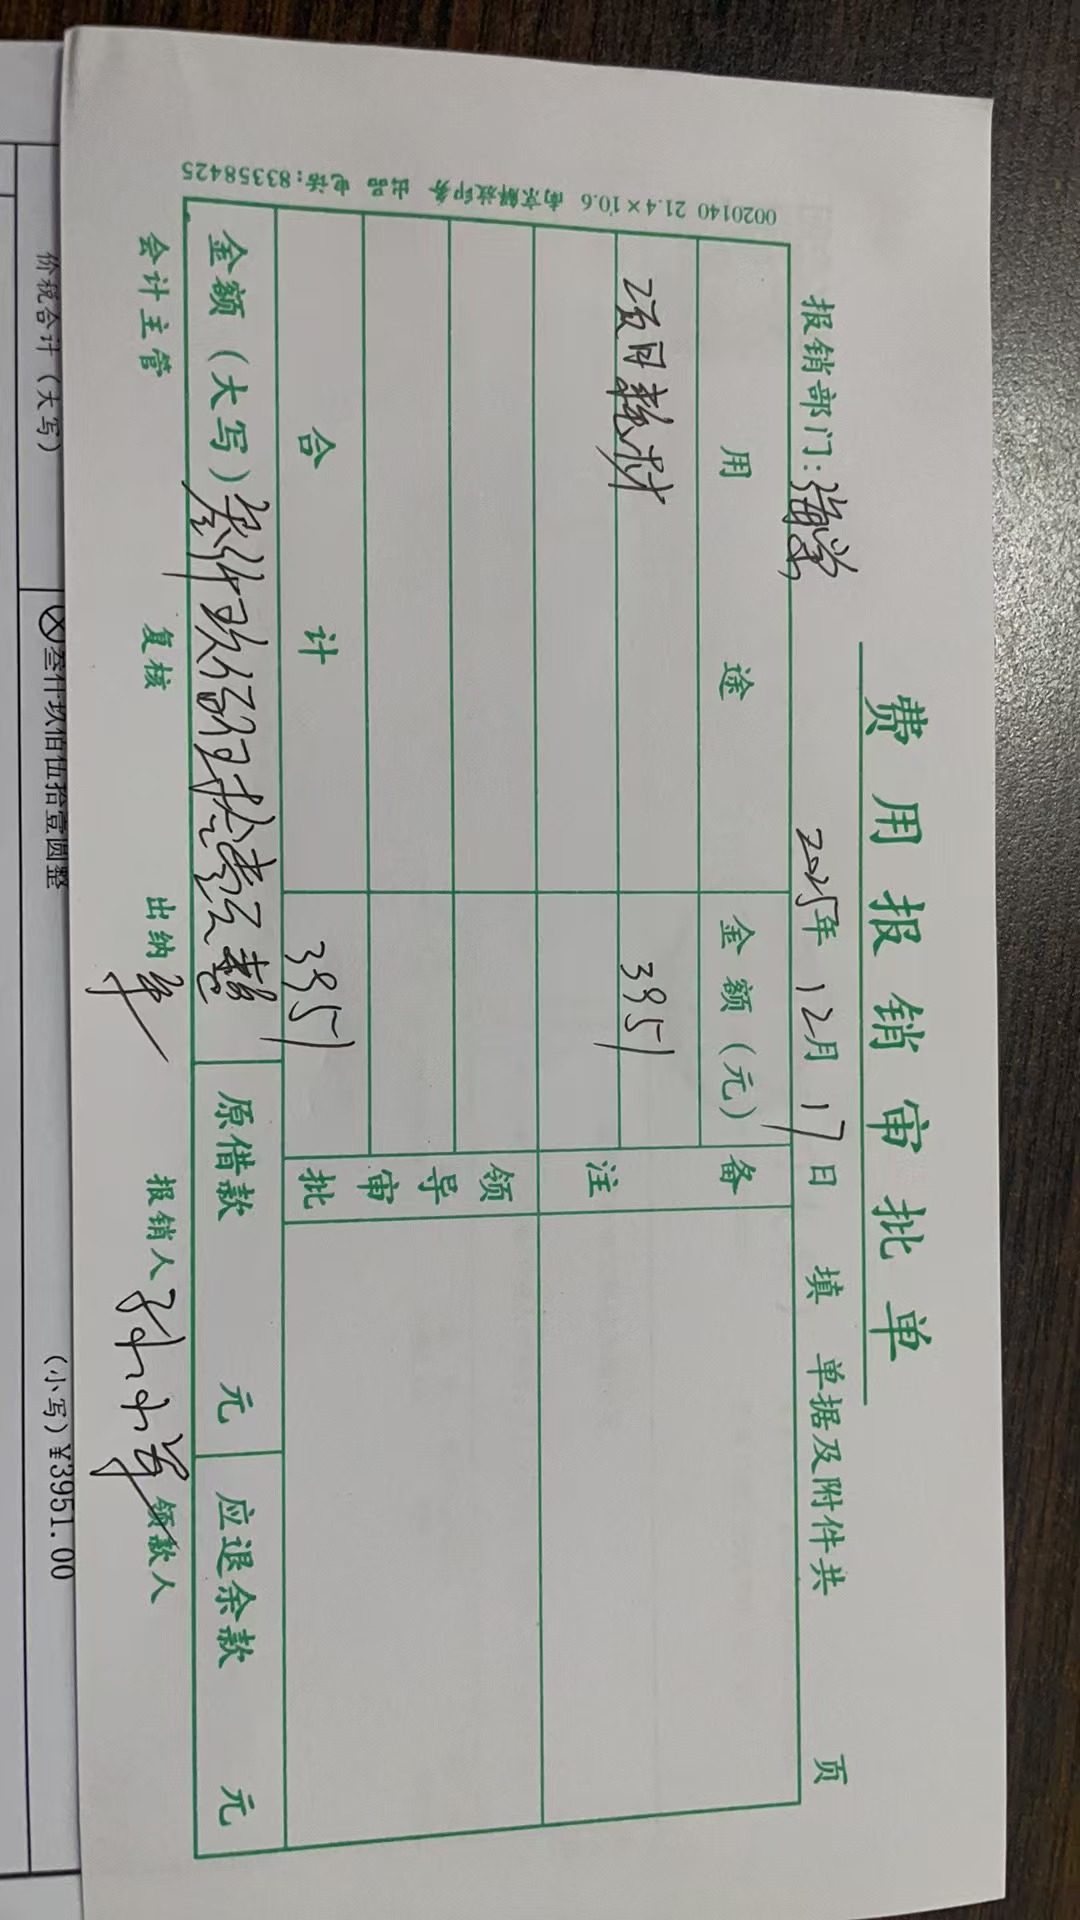 费用报销审批单
报销部门: 海棠 2025年 12月 17日 填 单据及附件共 页
用途 金额(元) 备注
项目耗材 3951
领导审批
合计 3951
金额(大写) 叁仟玖佰伍拾壹元整 原借款 元 应退余款 元
会计主管 复核 出纳 报销人 领款人
0020140 21.4×10.6 南京解放印务 出品 电话:83358425
价税合计(大写) ⊗叁仟玖佰伍拾壹圆整 (小写)¥3951.00